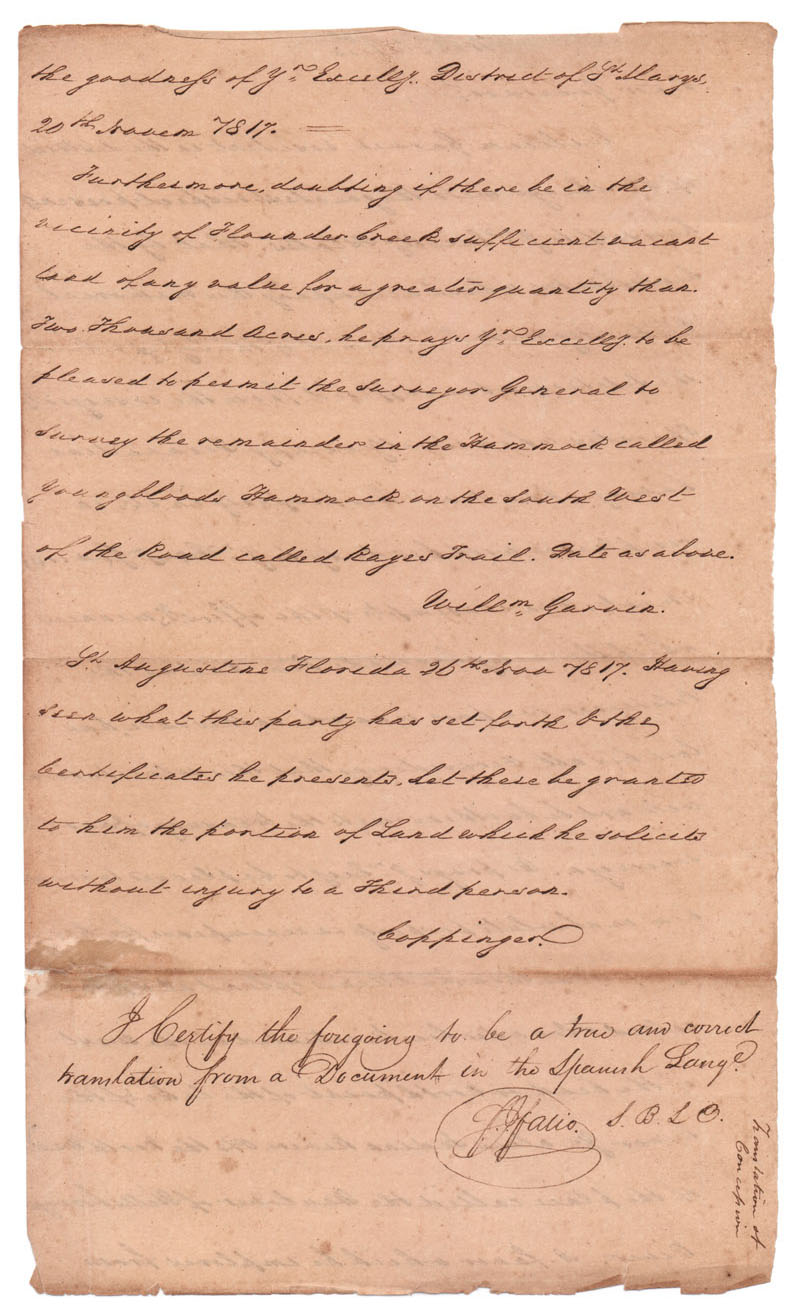 the goodness of Yr. Excelly. District of St. Marys,
20th Novem 1817.
Furthermore, doubting if there be in the
vicinity of Flounder Creek sufficient vacant
land of any value for a greater quantity than.
Two Thousand Acres, he prays Yr. Excelly. to be
pleased to permit the Surveyor General to
survey the remainder in the Hammock called
Youngbloods Hammock, on the South West
of the Road called Kayes Trail. Date as above.
Willm. Garvin.
St. Augustine Florida 26th Nov 1817. Having
seen what this party has set forth & the
Certificates he presents, let there be granted
to him the portion of Land which he solicits
without injury to a Third person.
Coppinger.
I Certify the foregoing to be a true and correct
translation from a Document in the Spanish Lange.
F. J. Fatio. S. B. L. C.
Translation of
Concession